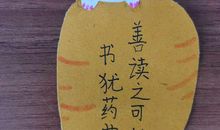 书犹药也
善读之可以